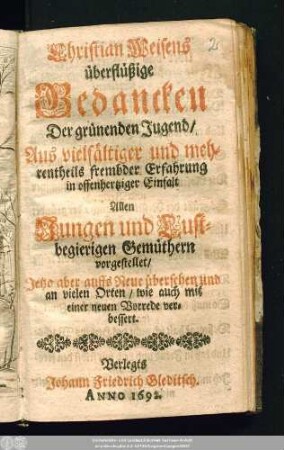 2
Christian Weisens
überflüßige
Gedancken
Der grünenden Jugend/
Aus vielfältiger und meh-
rentheils frembder Erfahrung
in offenhertziger Einfalt
Allen
Jungen und Lust-
begierigen Gemüthern
vorgestellet/
Jetzo aber auffs Neue übersehen und
an vielen Orten/ wie auch mit
einer neuen Vorrede ver-
bessert.
Verlegts
Johann Friedrich Gleditsch.
ANNO 1692.